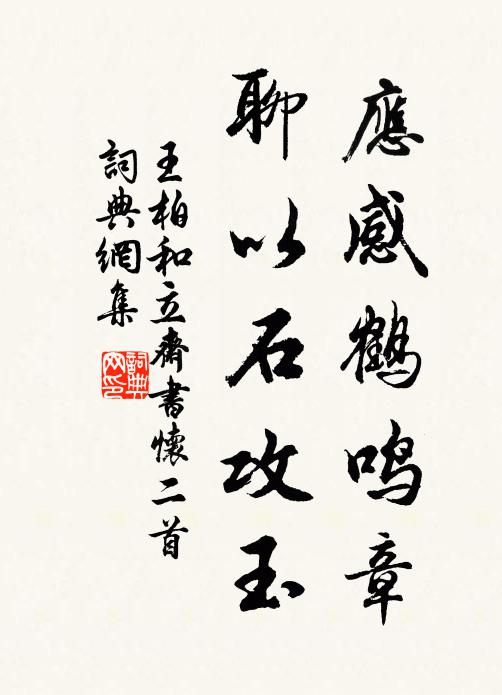 應感鶴鳴章
聊以石攻玉
王柏和立齋書懷二首
詞典網集
詞典
网印